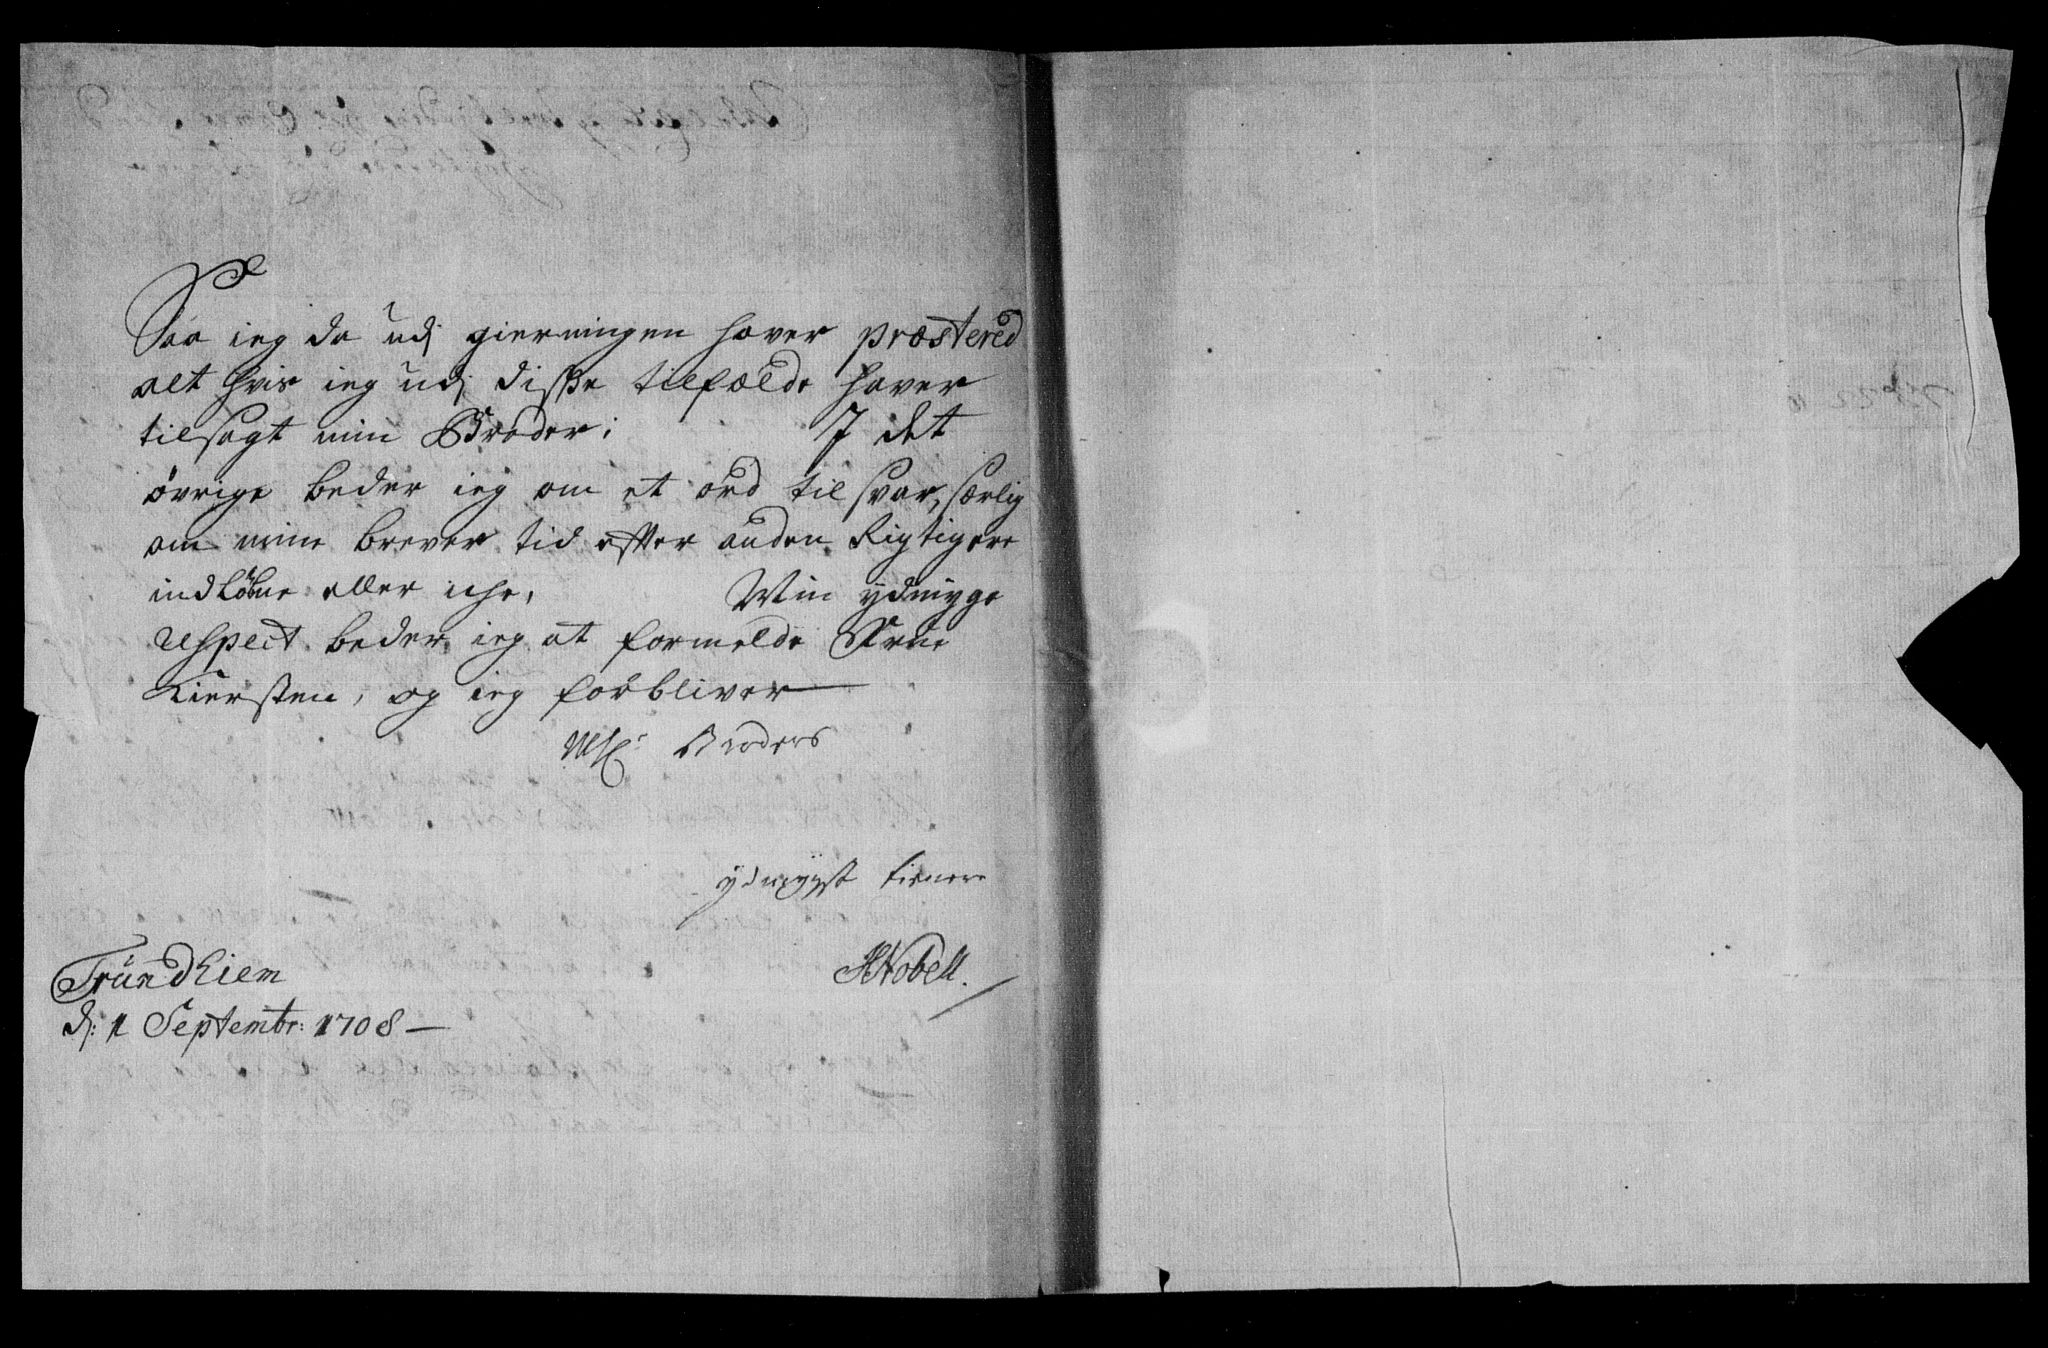 Saa ieg da udj gierningen haver præstered
alt hvis ieg udj disße tilfælde haver
tilsagt min Broder; J det
övrige beder ieg om et ord til svar, særlig
om mine brever tid effter anden Rigtigere
indlöbne eller iche, Min ydmyge
respect beder ieg at formelde Frue
Kiersten, og ieg forbliver
Broders
ydmygst tienere
HNobell.
Trundhiem
d: 1 Septembr: 1708 —